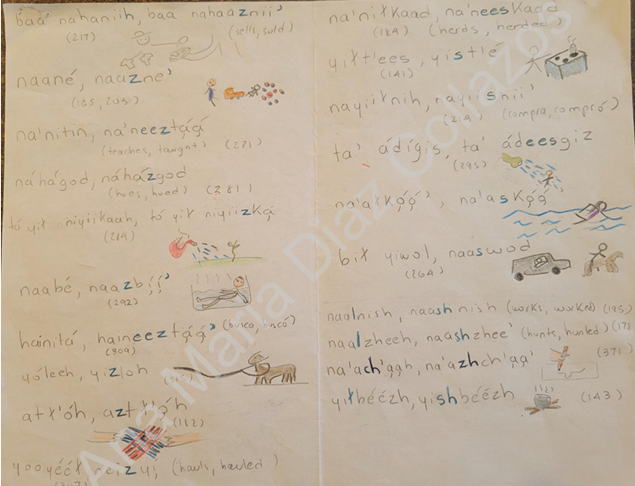 baa nahaniih, baa nahaaznii'
(217) (sells, sold)
naané, naazne'
na'nitin, na'neeztą́ą́
(teaches, taught) (271)
náhágod, náházgod
(hoes, hoed) (281)
tó yił niyiikaah, tó yił niyiizką́
(219)
naabé, naazbį́į́'
(292)
hainitá, haineeztą́ą́' (busca, buscó)
(309)
yóleeh, yizloh
atł'óh, aztł'óh
(182)
yooyééł, neizyį
(hauls, hauled)
na'niłkaad, na'neeskaad
(184) (herds, herded)
yiłt'ees, yist'é
(141)
nayiiłniih, nayiisnii'
(219) (compra, compró)
ta' ádígis, ta' ádeesgiz
(295)
na'ałkǫ́ǫ́', na'askǫ́ǫ́'
bił yiwoł, naaswod
(264)
naalnish, naashnish (works, worked) (195)
naalzheeh, naashzhee' (hunts, hunted) (17
na'ach'ąąh, na'azhch'ąą'
(371)
yiłbéézh, yishbéézh
(143)
Ana María Díaz Collazos